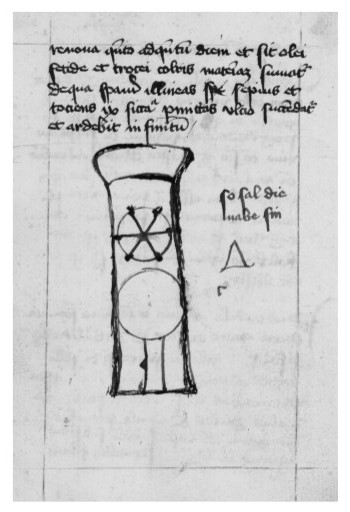 renova quito ad quitu diem et sit olei
fetide et trocei coltis materiaz sumat
de qua spam illineas spe sepius et
tociens vo sicca pmittas ultio succedat
et ardebit in finitu
so sal die
nabe sin